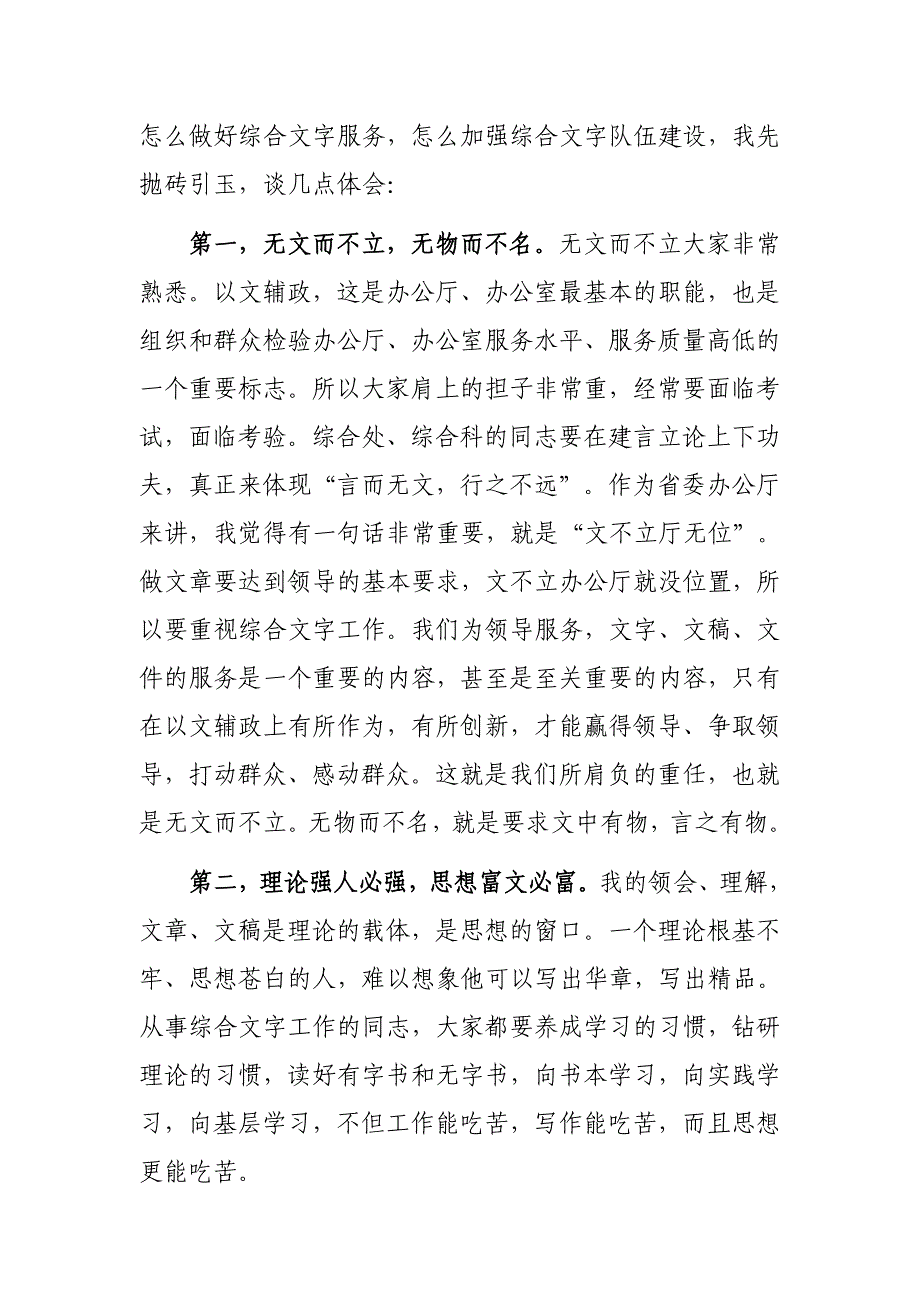 怎么做好综合文字服务，怎么加强综合文字队伍建设，我先
抛砖引玉，谈几点体会:
第一，无文而不立，无物而不名。无文而不立大家非常
熟悉。以文辅政，这是办公厅、办公室最基本的职能，也是
组织和群众检验办公厅、办公室服务水平、服务质量高低的
一个重要标志。所以大家肩上的担子非常重，经常要面临考
试，面临考验。综合处、综合科的同志要在建言立论上下功
夫，真正来体现“言而无文，行之不远”。作为省委办公厅
来讲，我觉得有一句话非常重要，就是“文不立厅无位”。
做文章要达到领导的基本要求，文不立办公厅就没位置，所
以要重视综合文字工作。我们为领导服务，文字、文稿、文
件的服务是一个重要的内容，甚至是至关重要的内容，只有
在以文辅政上有所作为，有所创新，才能赢得领导、争取领
导，打动群众、感动群众。这就是我们所肩负的重任，也就
是无文而不立。无物而不名，就是要求文中有物，言之有物。
第二，理论强人必强，思想富文必富。我的领会、理解，
文章、文稿是理论的载体，是思想的窗口。一个理论根基不
牢、思想苍白的人，难以想象他可以写出华章，写出精品。
从事综合文字工作的同志，大家都要养成学习的习惯，钻研
理论的习惯，读好有字书和无字书，向书本学习，向实践学
习，向基层学习，不但工作能吃苦，写作能吃苦，而且思想
更能吃苦。